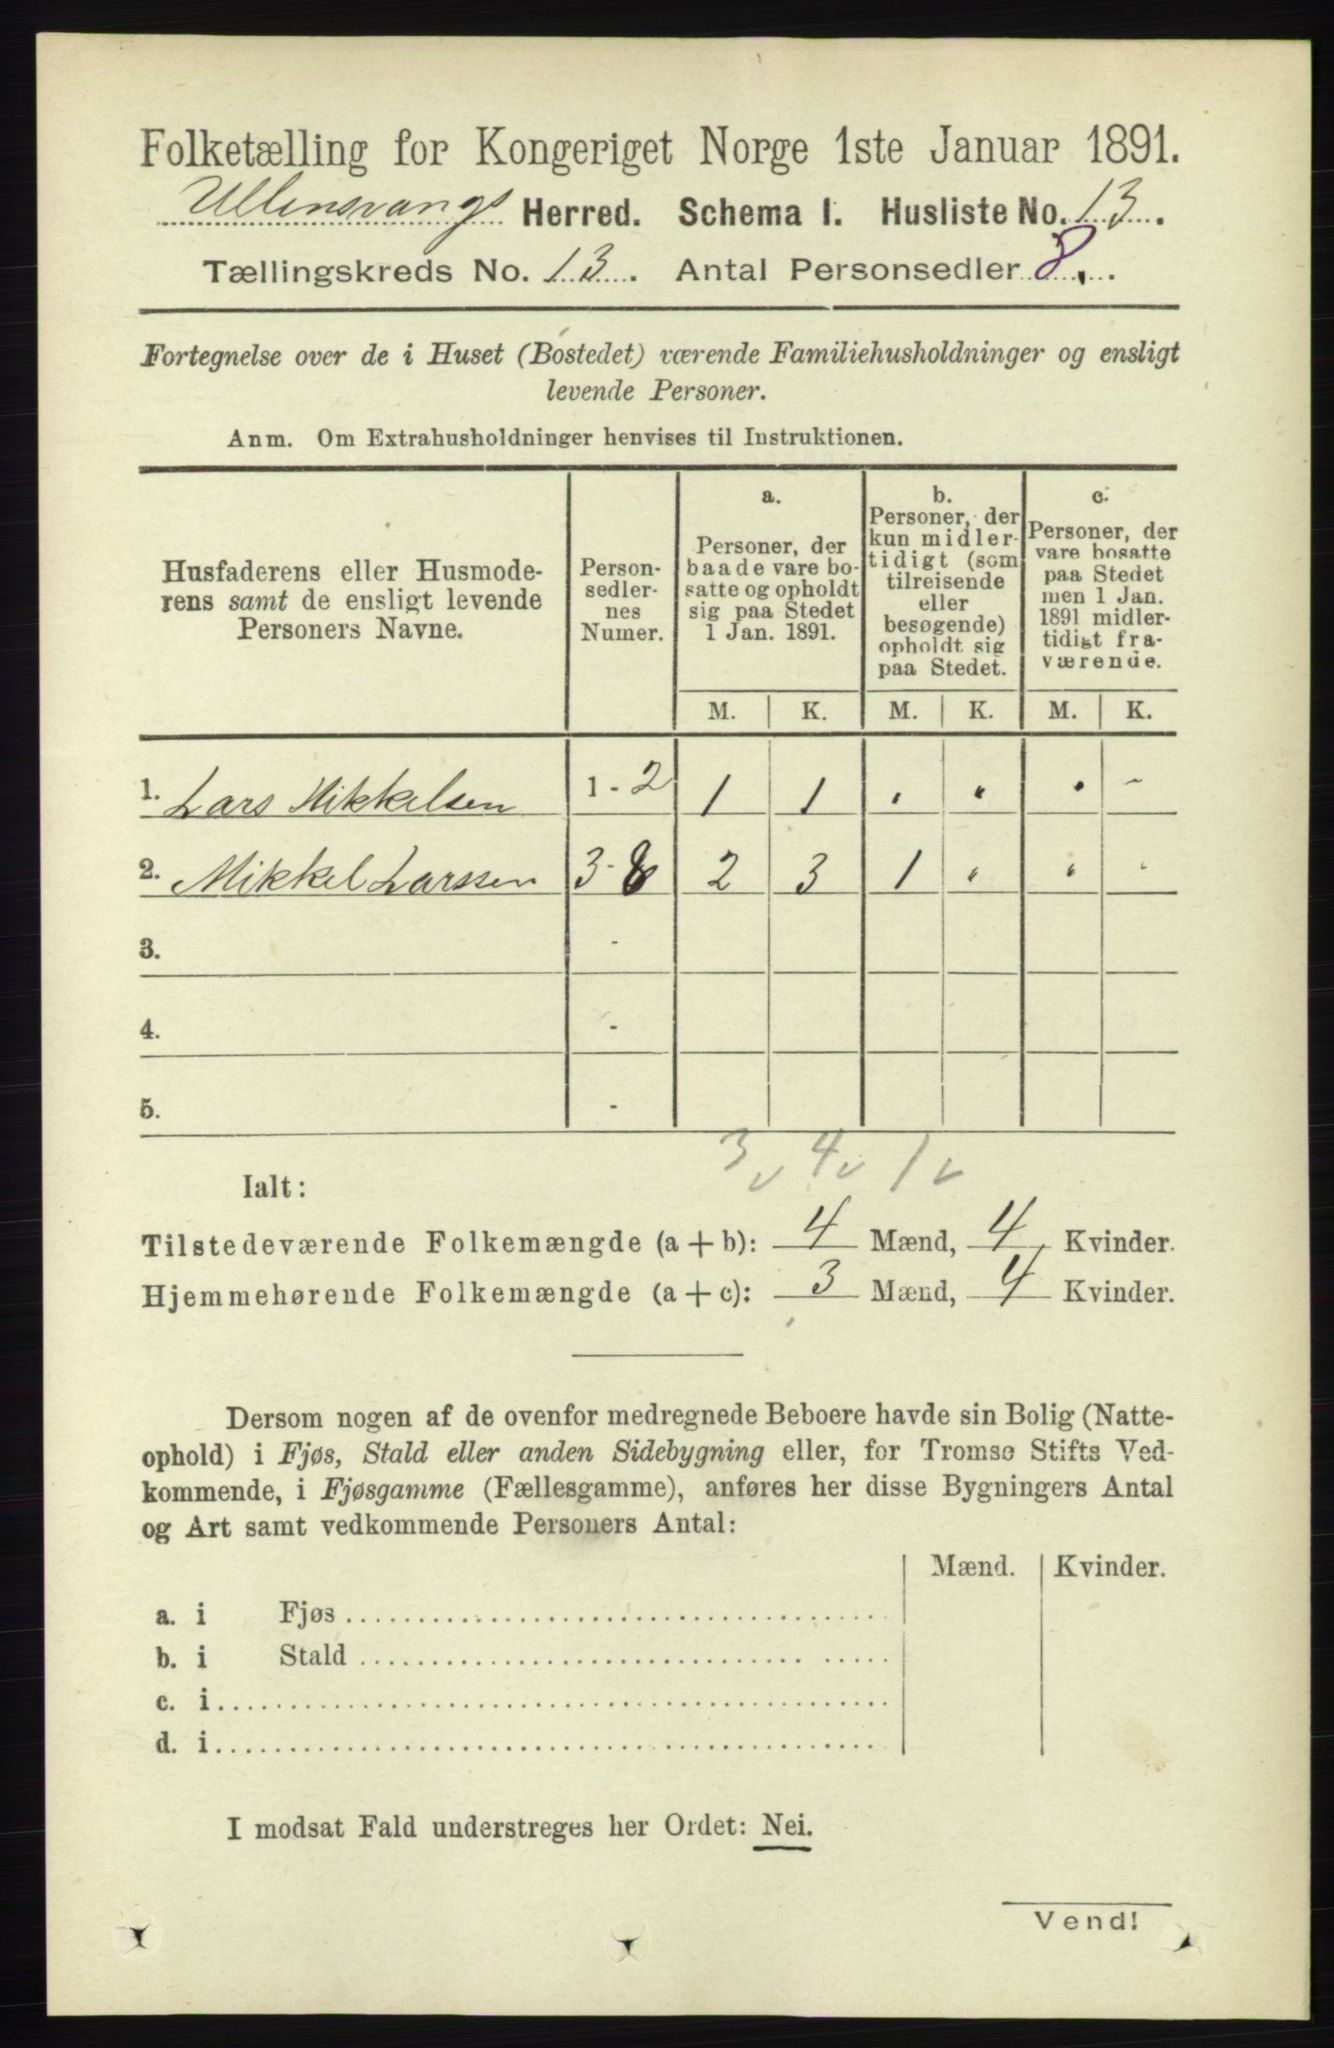 Folketælling for Kongeriget Norge 1ste Januar 1891.
Ullensvangs Herred. Schema I. Husliste No. 13.
Tællingskreds No. 13. Antal Personsedler 8.
Fortegnelse over de i Huset (Bostedet) værende Familiehusholdninger og ensligt
levende Personer.
Anm. Om Extrahusholdninger henvises til Instruktionen.
Husfaderens eller Husmode-
rens samt de ensligt levende
Personers Navne.
Person-
sedler-
nes
Numer.
a.
Personer, der
baade vare bo-
satte og opholdt
sig paa Stedet
1 Jan. 1891.
b.
Personer, der
kun midler-
tidigt (som
tilreisende
eller
besøgende)
opholdt sig
paa Stedet.
c.
Personer, der
vare bosatte
paa Stedet
men 1 Jan.
1891 midler-
tidigt fra-
værende.
M. K. M. K. M. K.
1. Lars Mikkelsen 1 - 2 1 1 " " " -
2. Mikkel Larssen 3 - 8 2 3 1 " " "
3. -
4. -
5. -
3 v 4 v 1 v
Ialt:
Tilstedeværende Folkemængde (a + b): 4 Mænd, 4 Kvinder.
Hjemmehørende Folkemængde (a + c): 3 Mænd, 4 Kvinder.
Dersom nogen af de ovenfor medregnede Beboere havde sin Bolig (Natte-
ophold) i Fjøs, Stald eller anden Sidebygning eller, for Tromsø Stifts Ved-
kommende, i Fjøsgamme (Fællesgamme), anføres her disse Bygningers Antal
og Art samt vedkommende Personers Antal:
Mænd. Kvinder.
a. i Fjøs
b. i Stald
c. i
d. i
I modsat Fald understreges her Ordet: Nei.
Vend!